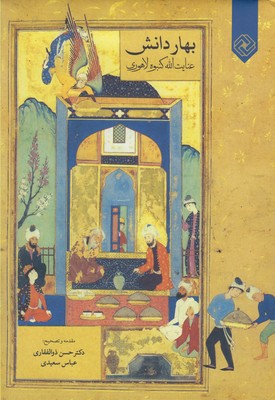 بهار دانش
عنایت الله کنبوه لاهوری
مقدمه و تصحیح:
دکتر حسن ذوالفقاری
عباس سعیدی